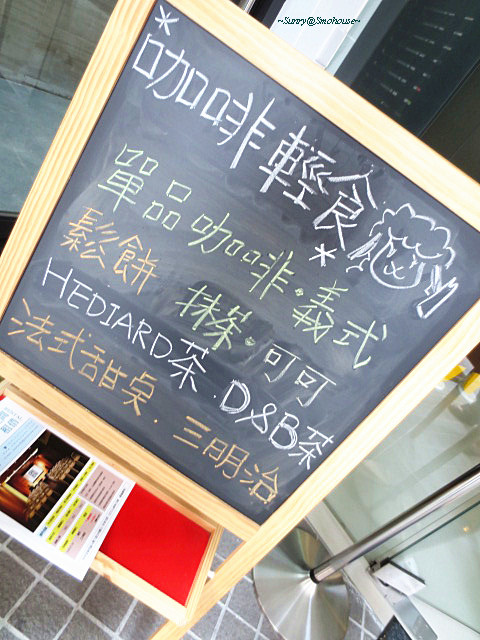 ~Sunry@Smohouse~
*咖啡輕食*
單品咖啡·義式
鬆餅 抹茶·可可
HEDIARD茶·D&B茶
法式甜桌·三明治